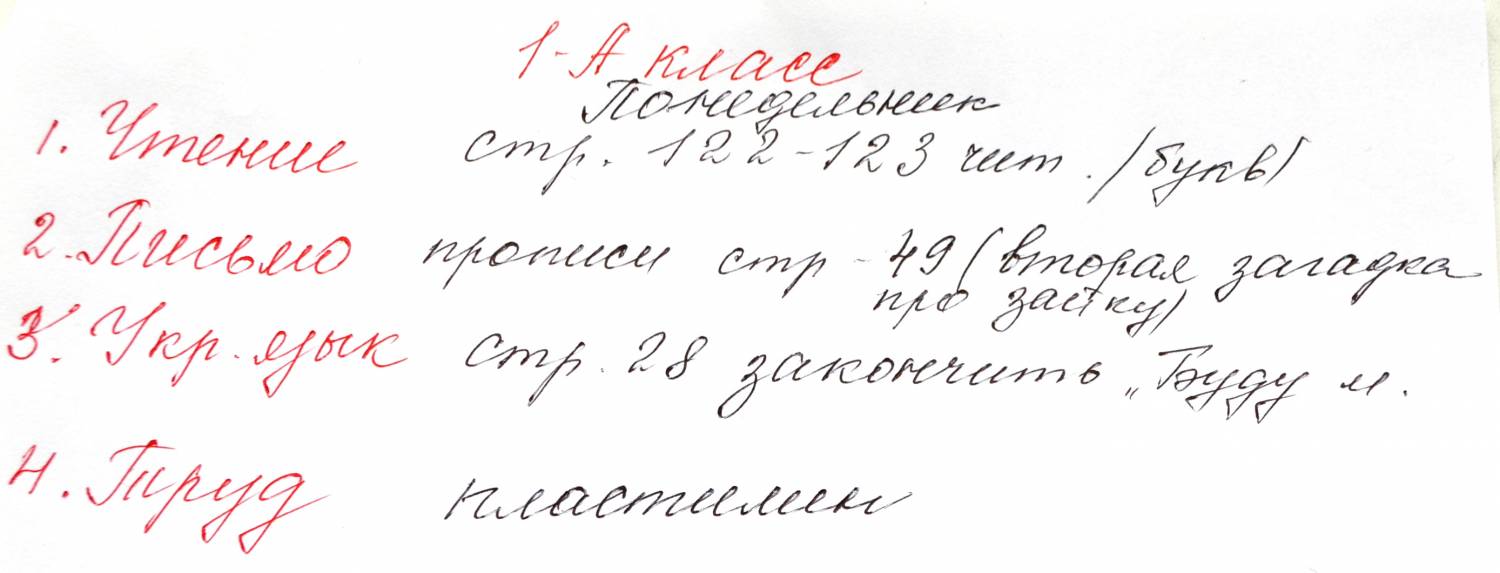 1-А класс
Понедельник
1. Чтение стр. 122-123 чит. /букв/
2. Письмо прописи стр - 49 (вторая загадка
про зайку)
3. Укр. язык стр. 28 закончить „Буду м.
4. Труд пластилин